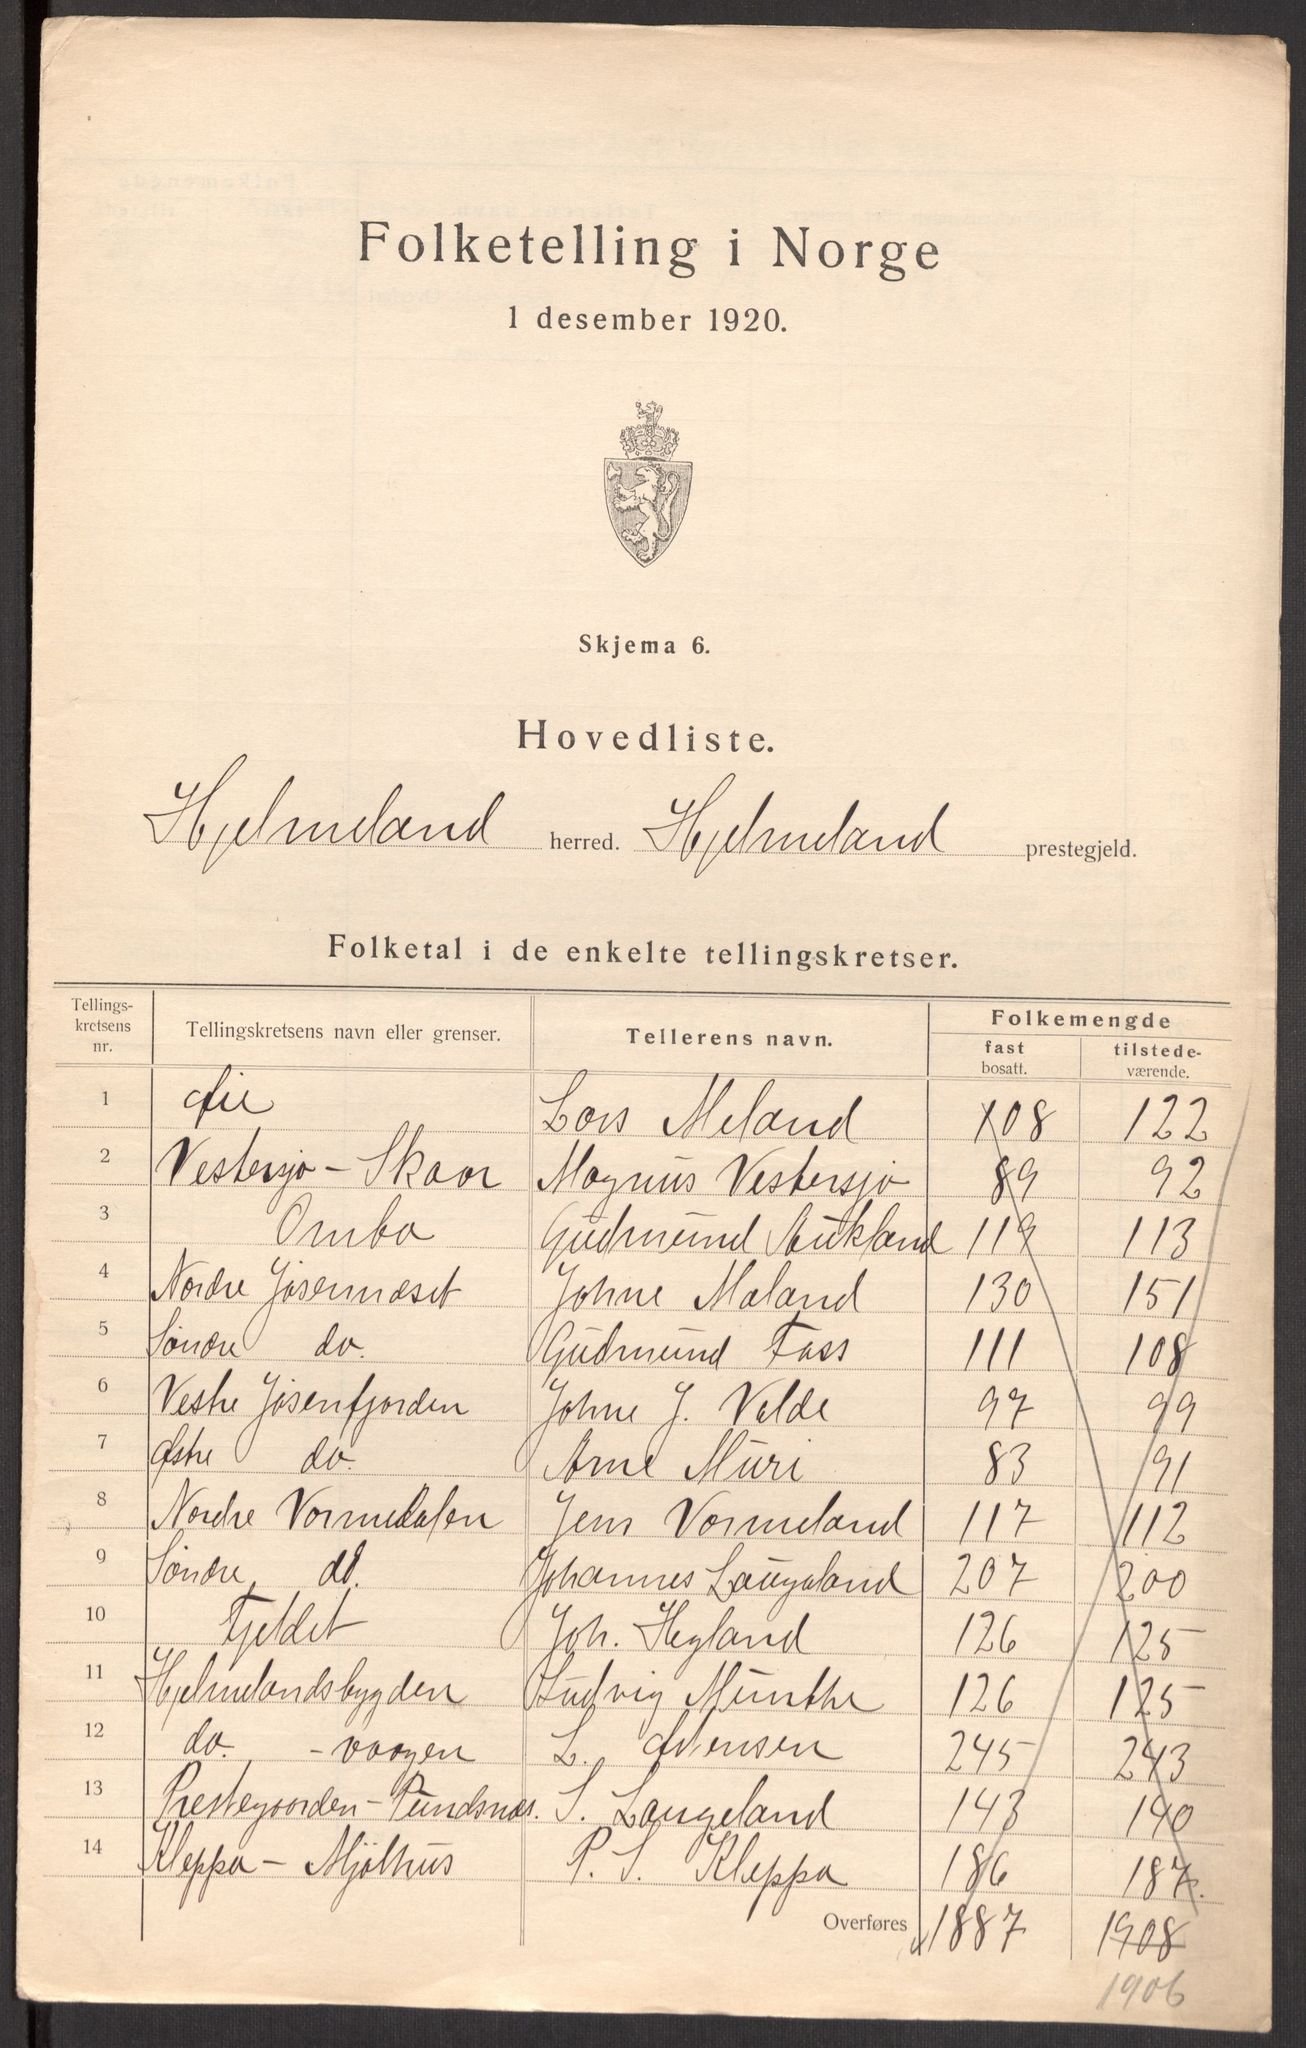 Folketelling i Norge
1 desember 1920.
Skjema 6.
Hovedliste.
Hjelmeland herred. Hjelmeland prestegjeld.
Folketal i de enkelte tellingskretser.
Tellings-
kretsens
nr.
Tellingskretsens navn eller grenser.
Tellerens navn.
Folkemengde
fast
bosatt.
tilstede-
værende.
1 Øie Lars Meland 108 122
2 Vestersjø - Skaar Magnus Vestersjø 89 92
3 Ombo Gudmund Aukland 119 113
4 Nordre Jøsenneset Johne Maland 130 151
5 Søndre do. Gudmund Foss 111 108
6 Vestre Jøsenfjorden Johne J. Valde 97 99
7 Østre do. Arne Muri 83 91
8 Nordre Vormedalen Jens Vormeland 117 112
9 Søndre do. Johannes Laugaland 207 200
10 Fjeldet Joh. Hegland 126 125
11 Hjelmelandsbygden Ludvig Munthe 126 125
12 do. - vaagen L. 245 243
13 Prestegaarden - Pundsnes. S. Laugeland 143 140
14 Kleppa - Mjølhus P. S. Kleppa 186 187.
Overføres 1887 1908
1906